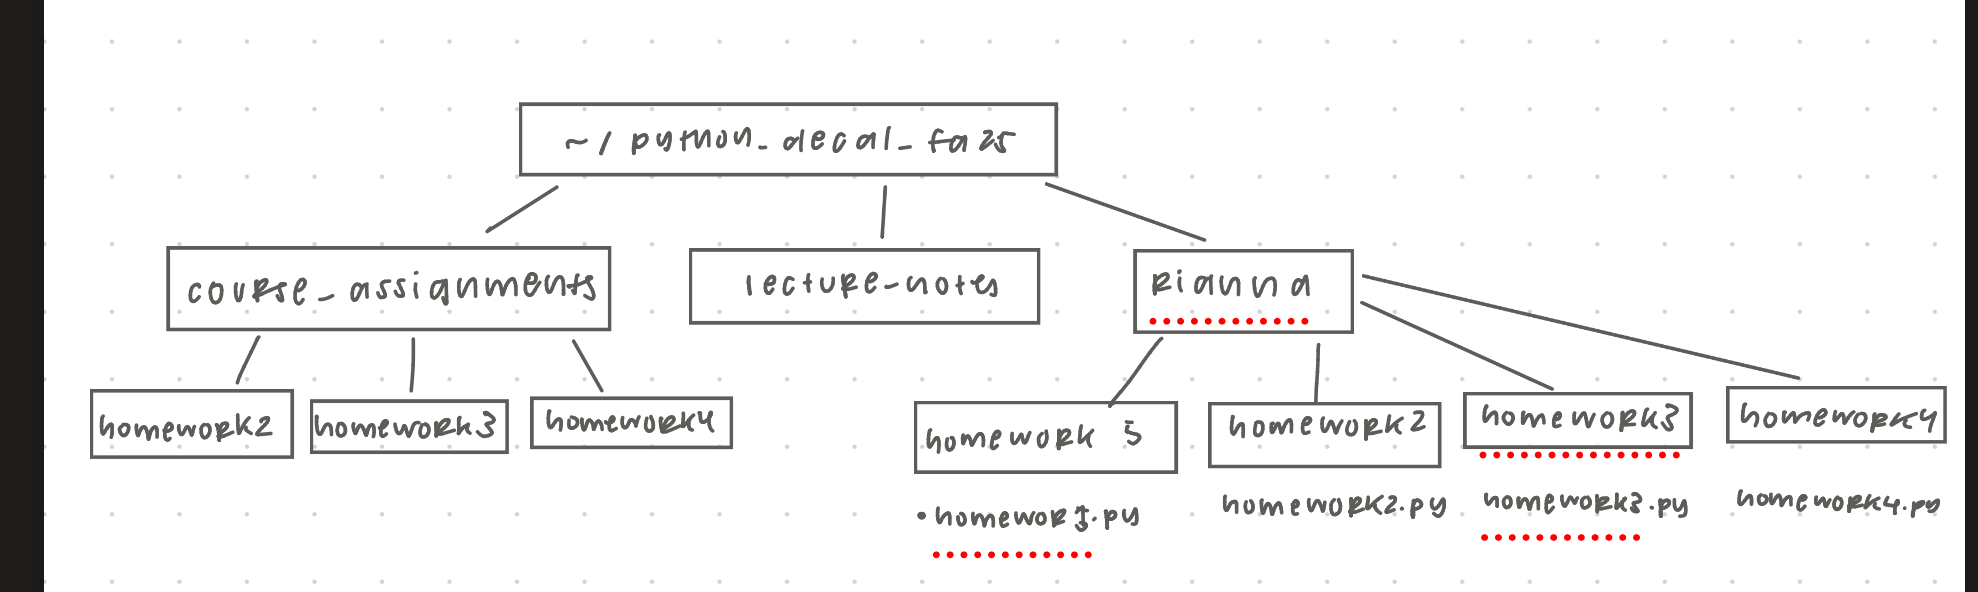 ~/ python_decal_fa25
course_assignments
lecture-notes
rianna
homework2
homework3
homework4
homework 5
homework2
homework3
homework4
homework2.py
homework3.py
homework4.py